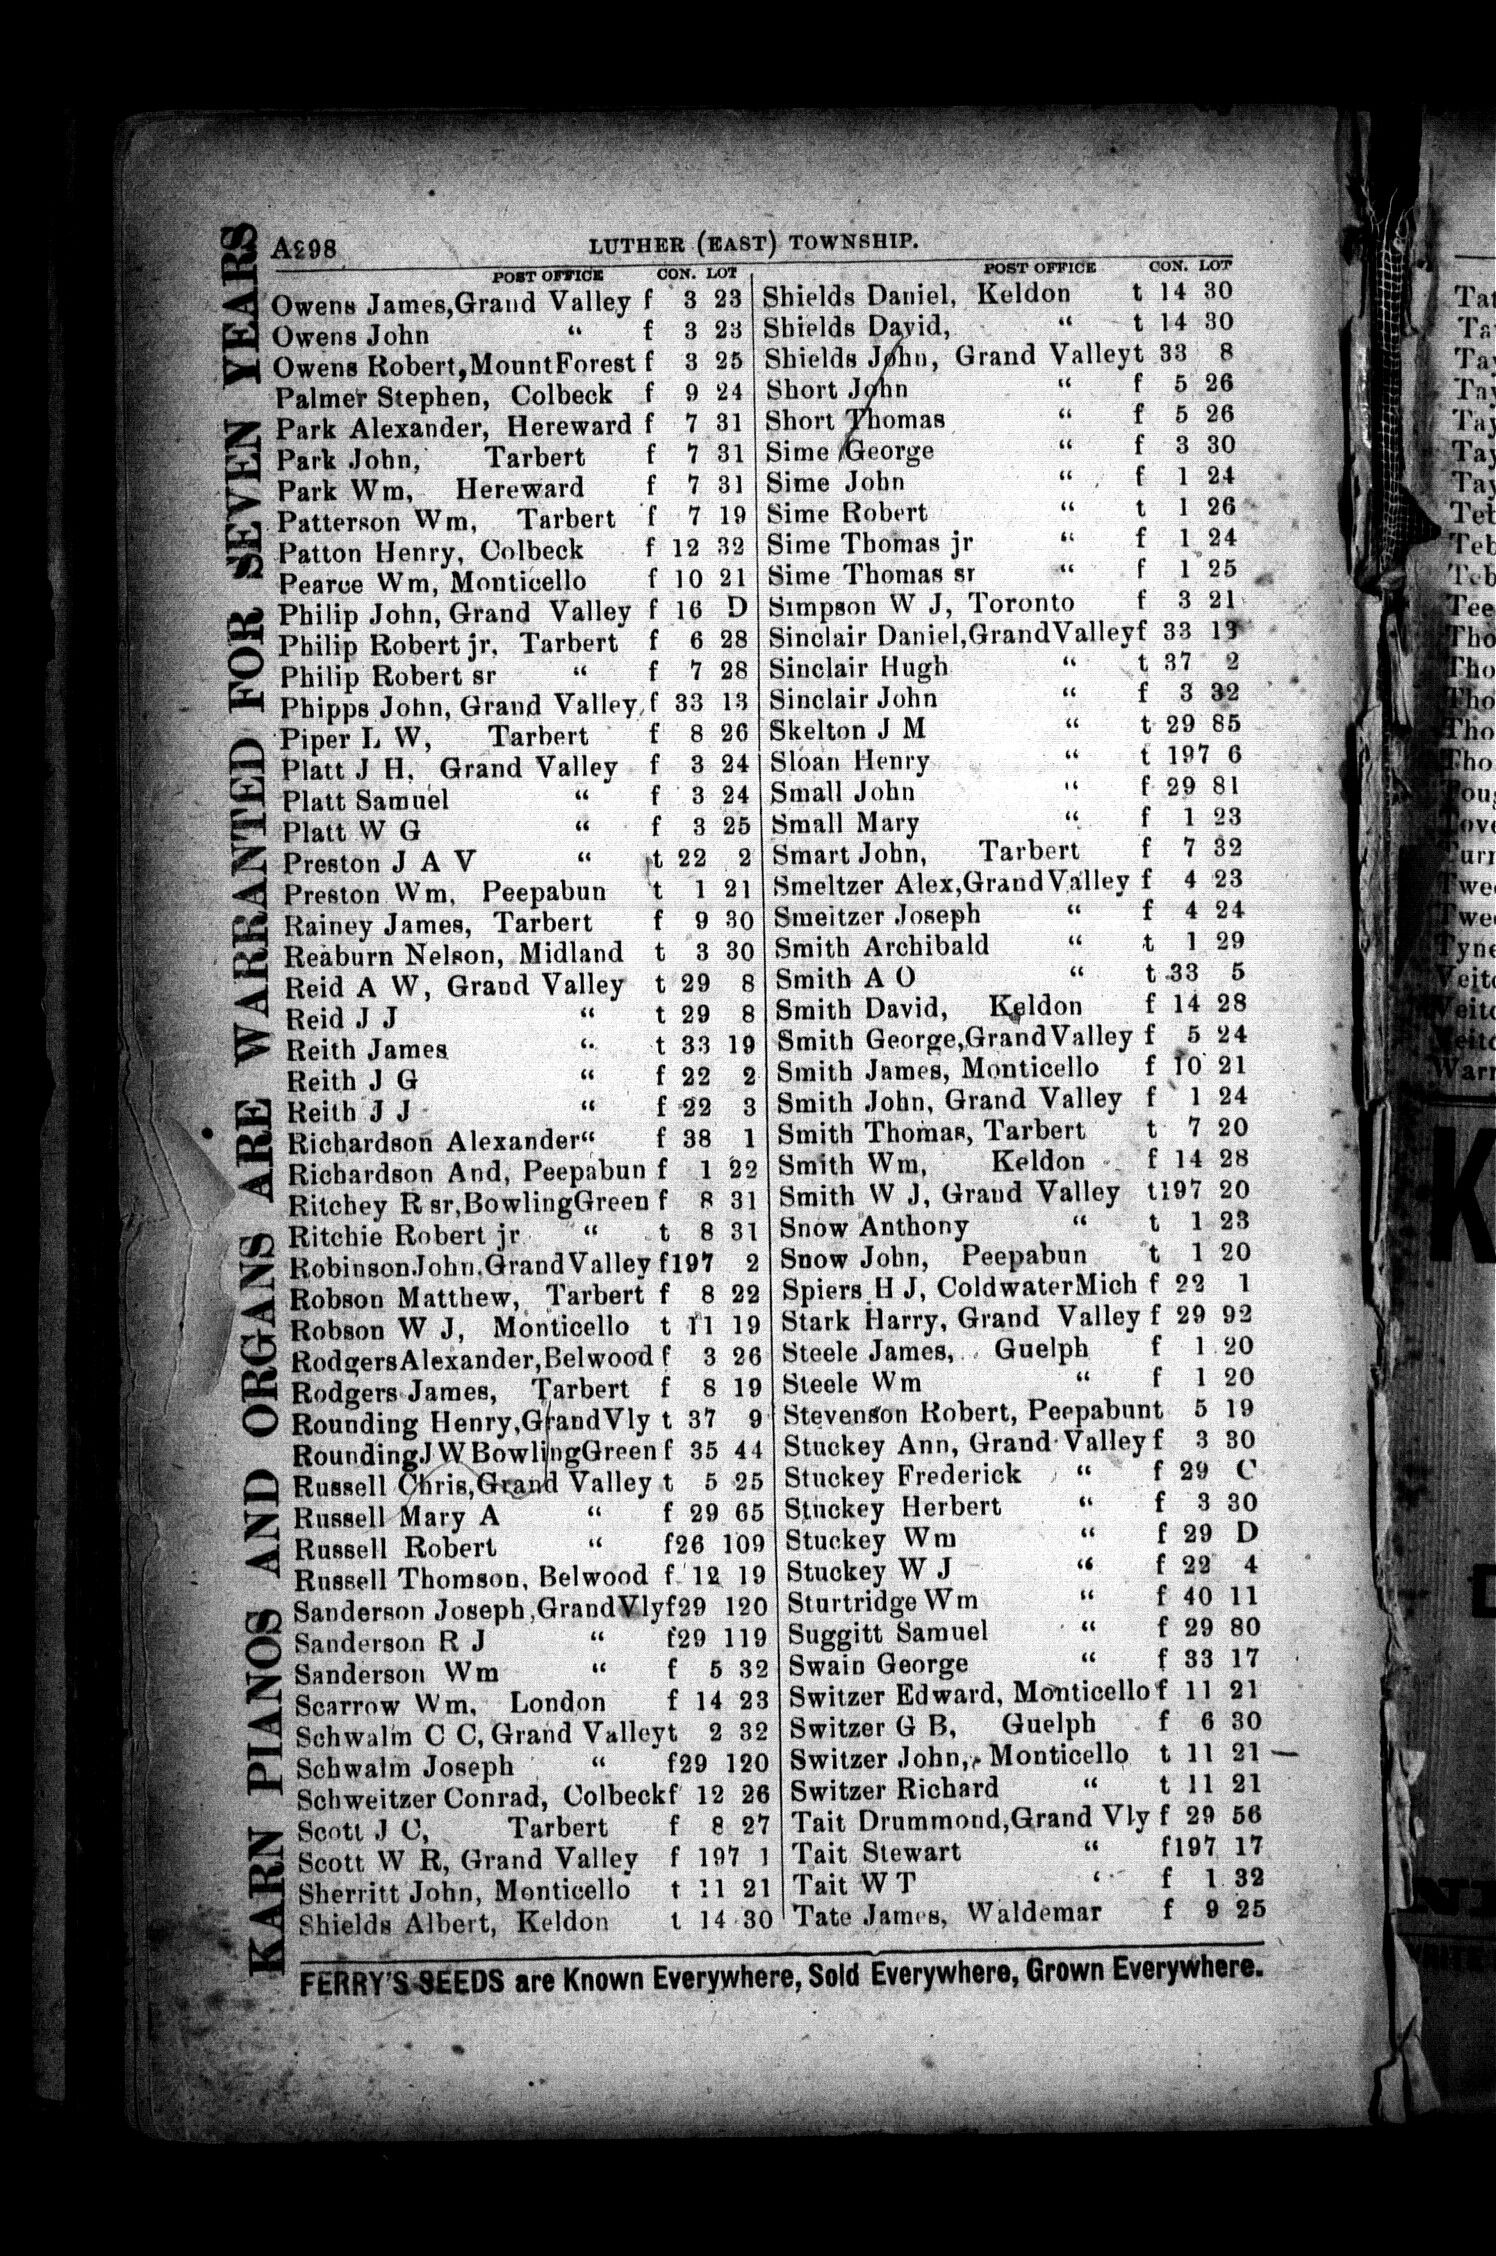 A298 LUTHER (EAST) TOWNSHIP.
KARN PIANOS AND ORGANS ARE WARRANTED FOR SEVEN YEARS
POST OFFICE CON. LOT
Owens James,Grand Valley f 3 23
Owens John “ f 3 23
Owens Robert,MountForest f 3 25
Palmer Stephen, Colbeck f 9 24
Park Alexander, Hereward f 7 31
Park John, Tarbert f 7 31
Park Wm, Hereward f 7 31
Patterson Wm, Tarbert f 7 19
Patton Henry, Colbeck f 12 32
Pearce Wm, Monticello f 10 21
Philip John, Grand Valley f 16 D
Philip Robert jr, Tarbert f 6 28
Philip Robert sr “ f 7 28
Phipps John, Grand Valley, f 33 13
Piper L W, Tarbert f 8 26
Platt J H, Grand Valley f 3 24
Platt Samuel “ f 3 24
Platt W G “ f 3 25
Preston J A V “ t 22 2
Preston Wm, Peepabun t 1 21
Rainey James, Tarbert f 9 30
Reaburn Nelson, Midland t 3 30
Reid A W, Grand Valley t 29 8
Reid J J “ t 29 8
Reith James “ t 33 19
Reith J G “ f 22 2
Reith J J “ f 22 3
Richardson Alexander“ f 38 1
Richardson And, Peepabun f 1 22
Ritchey R sr,BowlingGreen f 8 31
Ritchie Robert jr “ t 8 31
Robinson John,GrandValley f197 2
Robson Matthew, Tarbert f 8 22
Robson W J, Monticello t 11 19
RodgersAlexander,Belwood f 3 26
Rodgers James, Tarbert f 8 19
Rounding Henry,GrandVly t 37 9
RoundingJWBowlingGreen f 35 44
Russell Chris,Grand Valley t 5 25
Russell Mary A “ f 29 65
Russell Robert “ f26 109
Russell Thomson, Belwood f 12 19
Sanderson Joseph,GrandVlyf29 120
Sanderson R J “ f29 119
Sanderson Wm “ f 5 32
Scarrow Wm, London f 14 23
Schwalm C C, Grand Valleyt 2 32
Schwalm Joseph “ f29 120
Schweitzer Conrad, Colbeckf 12 26
Scott J C, Tarbert f 8 27
Scott W R, Grand Valley f 197 1
Sherritt John, Monticello t 11 21
Shields Albert, Keldon t 14 30
POST OFFICE CON. LOT
Shields Daniel, Keldon t 14 30
Shields David, “ t 14 30
Shields John, Grand Valleyt 33 8
Short John “ f 5 26
Short Thomas “ f 5 26
Sime George “ f 3 30
Sime John “ f 1 24
Sime Robert “ t 1 26
Sime Thomas jr “ f 1 24
Sime Thomas sr “ f 1 25
Simpson W J, Toronto f 3 21
Sinclair Daniel,GrandValleyf 33 13
Sinclair Hugh “ t 37 2
Sinclair John “ f 3 32
Skelton J M “ t 29 85
Sloan Henry “ t 197 6
Small John “ f 29 81
Small Mary “ f 1 23
Smart John, Tarbert f 7 32
Smeltzer Alex,GrandValley f 4 23
Smeitzer Joseph “ f 4 24
Smith Archibald “ t 1 29
Smith A O “ t 33 5
Smith David, Keldon f 14 28
Smith George,GrandValley f 5 24
Smith James, Monticello f 10 21
Smith John, Grand Valley f 1 24
Smith Thomas, Tarbert t 7 20
Smith Wm, Keldon f 14 28
Smith W J, Grand Valley t197 20
Snow Anthony “ t 1 23
Snow John, Peepabun t 1 20
Spiers H J, ColdwaterMich f 22 1
Stark Harry, Grand Valley f 29 92
Steele James, Guelph f 1 20
Steele Wm “ f 1 20
Stevenson Robert, Peepabunt 5 19
Stuckey Ann, Grand Valley f 3 30
Stuckey Frederick “ f 29 C
Stuckey Herbert “ f 3 30
Stuckey Wm “ f 29 D
Stuckey W J “ f 22 4
Sturtridge Wm “ f 40 11
Suggitt Samuel “ f 29 80
Swain George “ f 33 17
Switzer Edward, Monticello f 11 21
Switzer G B, Guelph f 6 30
Switzer John, Monticello t 11 21
Switzer Richard “ t 11 21
Tait Drummond,Grand Vly f 29 56
Tait Stewart “ f197 17
Tait W T “ f 1 32
Tate James, Waldemar f 9 25
FERRY'S SEEDS are Known Everywhere, Sold Everywhere, Grown Everywhere.